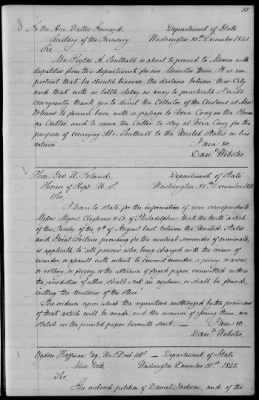 To the Hon. Walter Forward, Department of State
Secretary of the Treasury. Washington 30th December 1842
Sir,
Mr. Southall is about to proceed to Mexico with
despatches from this department for our Minister there. It is im-
portant that he should traverse the distance between this City
and that with as little delay as may be practicable. I will
consequently thank you to direct the Collector of the Customs at New
Orleans to furnish him with a passage to Vera Cruz in the Reve-
nue Cutter, and to cause the Cutter to stay at Vera Cruz for the
purpose of carrying Mr. Southall to the United States on his
return.
I am &c
Danl. Webster.
Department of State
House of Reps. U. S. Washington 30th December 1842
Sir,
I have to state for the information of your correspondents
of Philadelphia that the tenth article
of the Treaty of the 9th of August last between the United States
and Great Britain providing for the mutual surrender of criminals,
is applicable to "all persons who being charged with the crime of
murder, or assault with intent to commit murder, or piracy, or arson,
or robbery, or forgery, or the utterance of forged paper committed within
the jurisdiction of either shall seek an asylum, or shall be found,
within the territories of the other."
The evidence upon which the requisition authorized by the provisions
of that article will be made, and the manner of giving them, are
stated in the printed paper herewith sent.
I am &c
Danl. Webster.
Ogden Hoffman Esq. Department of State
New York. Washington December 31st 1842
Sir,
petition of Daniel Jackson, and of the